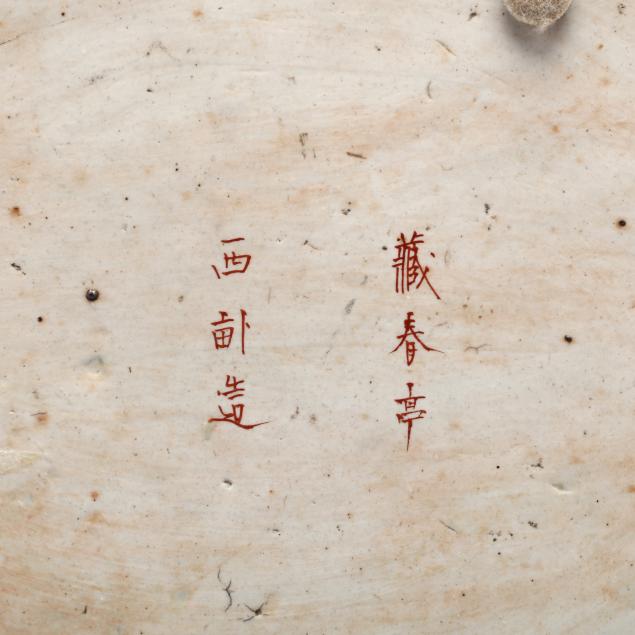 藏春亭
西畝造